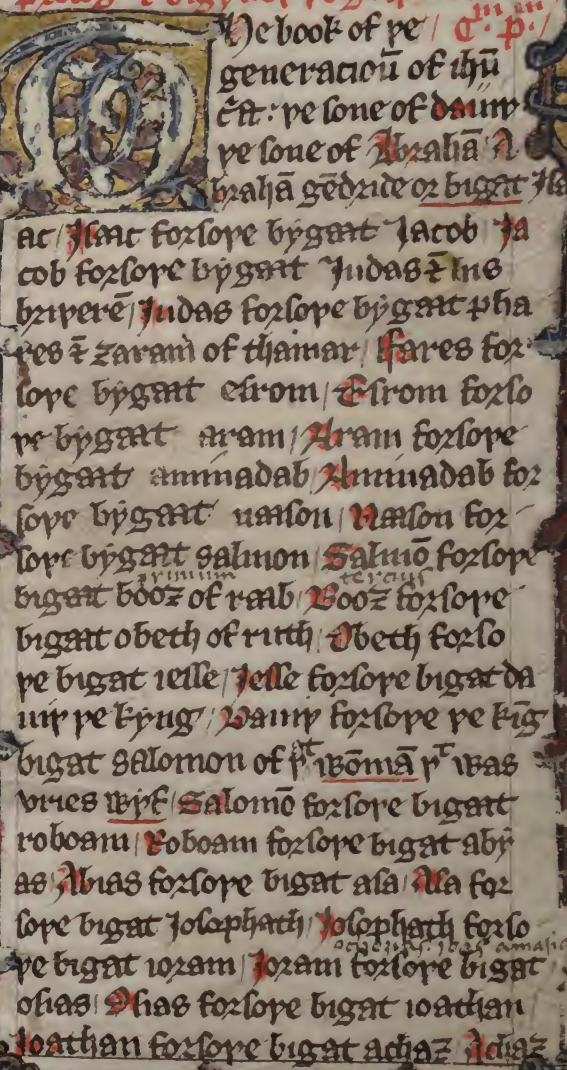 The book of þe / Cᵐ pᵐ /
generacioū of ihū
c̄st : þe sone of dauiþ
þe sone of Abrahā A
brahā gēdride or bigat Isa
ac / Isaac forsoþe bygatt Jacob Ja
cob forsoþe bygatt Judas & his
briþerē / Judas forsoþe bygatt pha
res & zaram of thamar / Fares for
soþe bygatt esrom / Esrom forso
þe bygatt aram / Aram forsoþe
bygatt aminadab / Aminadab for
soþe bygatt naason / Naason for
soþe bygatt salmon / Salmō forsoþe
primum tercius
bigatt booz of raab / Booz forsoþe
bigatt obeth of ruth / Obeth forso
þe bigat iesse / Jesse forsoþe bigat da
uiþ þe kyng / Dauiþ forsoþe þe kīg
bigat salomon of þᵗ wōmā þᵗ was
vries wyf / Salomō forsoþe bigatt
roboam / Roboam forsoþe bigat aby
as / Abias forsoþe bigat asa / Asa for
soþe bigat Josophath / Josophath forso
ochosias ioas amasias
þe bigat ioram / Joram forsoþe bigat
osias / Osias forsoþe bigat ioathan
Joathan forsoþe bigat achaz Achaz